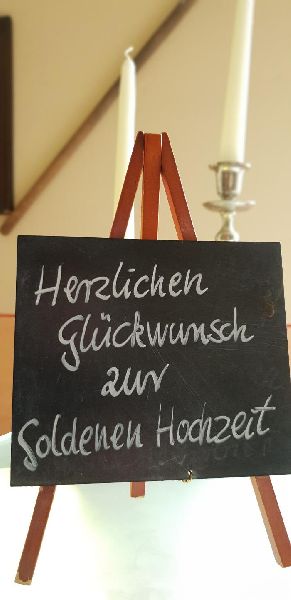 Herzlichen
Glückwunsch
zur
Goldenen Hochzeit